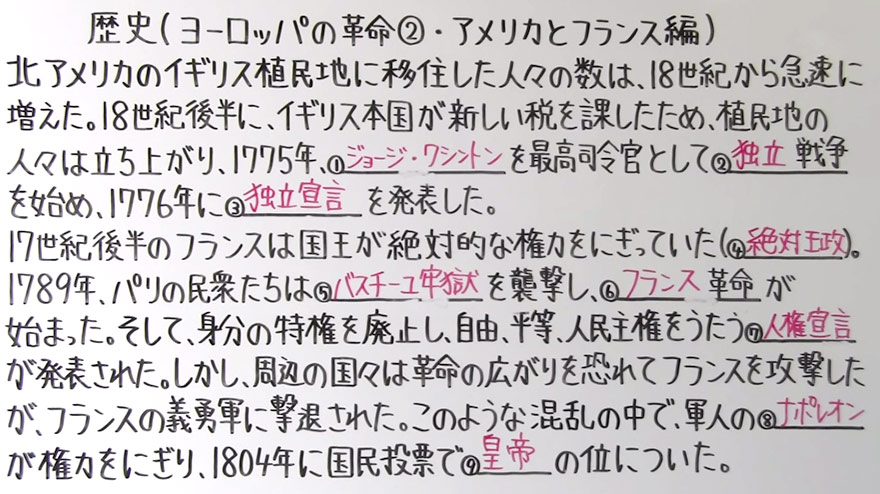 歴史(ヨーロッパの革命②・アメリカとフランス編)
北アメリカのイギリス植民地に移住した人々の数は、18世紀から急速に
増えた。18世紀後半に、イギリス本国が新しい税を課したため、植民地の
人々は立ち上がり、1775年、①ジョージ・ワシントンを最高司令官として②独立戦争
を始め、1776年に③独立宣言を発表した。
17世紀後半のフランスは国王が絶対的な権力をにぎっていた(④絶対王政)。
1789年、パリの民衆たちは⑤バスチーユ牢獄を襲撃し、⑥フランス革命が
始まった。そして、身分の特権を廃止し、自由、平等、人民主権をうたう⑦人権宣言
が発表された。しかし、周辺の国々は革命の広がりを恐れてフランスを攻撃した
が、フランスの義勇軍に撃退された。このような混乱の中で、軍人の⑧ナポレオン
が権力をにぎり、1804年に国民投票で⑨皇帝の位についた。